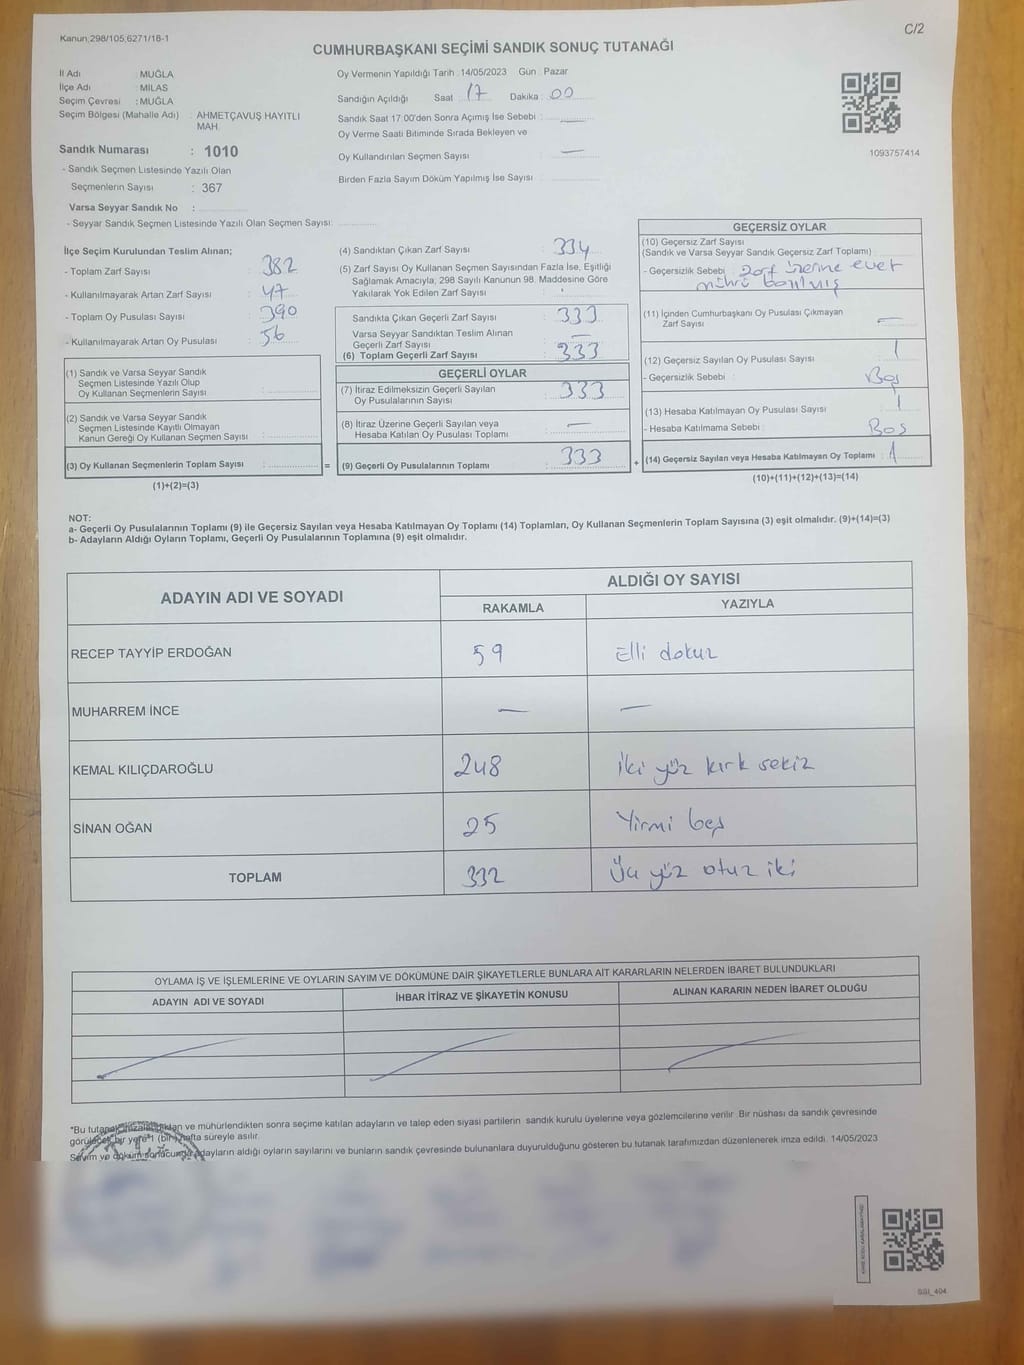 Kanun;298/105;6271/18-1
C/2
CUMHURBAŞKANI SEÇİMİ SANDIK SONUÇ TUTANAĞI
İl Adı : MUĞLA
İlçe Adı : MİLAS
Seçim Çevresi : MUĞLA
Seçim Bölgesi (Mahalle Adı) : AHMETÇAVUŞ HAYITLI
MAH.
Sandık Numarası : 1010
- Sandık Seçmen Listesinde Yazılı Olan
Seçmenlerin Sayısı : 367
Varsa Seyyar Sandık No :
- Seyyar Sandık Seçmen Listesinde Yazılı Olan Seçmen Sayısı:
Oy Vermenin Yapıldığı Tarih : 14/05/2023 Gün : Pazar
Sandığın Açıldığı Saat 17 Dakika : 00
Sandık Saat 17:00'den Sonra Açımış İse Sebebi : —
Oy Verme Saati Bitiminde Sırada Bekleyen ve
Oy Kullandırılan Seçmen Sayısı : —
Birden Fazla Sayım Döküm Yapılmış İse Sayısı
1093757414
İlçe Seçim Kurulundan Teslim Alınan;
- Toplam Zarf Sayısı : 382
- Kullanılmayarak Artan Zarf Sayısı : 47
- Toplam Oy Pusulası Sayısı : 390
- Kullanılmayarak Artan Oy Pusulası : 56
(1) Sandık ve Varsa Seyyar Sandık
Seçmen Listesinde Yazılı Olup
Oy Kullanan Seçmenlerin Sayısı :
(2) Sandık ve Varsa Seyyar Sandık
Seçmen Listesinde Kayıtlı Olmayan
Kanun Gereği Oy Kullanan Seçmen Sayısı :
(3) Oy Kullanan Seçmenlerin Toplam Sayısı : =
(1)+(2)=(3)
(4) Sandıktan Çıkan Zarf Sayısı : 334
(5) Zarf Sayısı Oy Kullanan Seçmen Sayısından Fazla İse, Eşitliği
Sağlamak Amacıyla, 298 Sayılı Kanunun 98. Maddesine Göre
Yakılarak Yok Edilen Zarf Sayısı :
Sandıkla Çıkan Geçerli Zarf Sayısı : 333
Varsa Seyyar Sandıktan Teslim Alınan
Geçerli Zarf Sayısı : —
(6) Toplam Geçerli Zarf Sayısı : 333
GEÇERLİ OYLAR
(7) İtiraz Edilmeksizin Geçerli Sayılan
Oy Pusulalarının Sayısı : 333
(8) İtiraz Üzerine Geçerli Sayılan veya
Hesaba Katılan Oy Pusulası Toplamı : —
(9) Geçerli Oy Pusulalarının Toplamı : 333 +
GEÇERSİZ OYLAR
(10) Geçersiz Zarf Sayısı
(Sandık ve Varsa Seyyar Sandık Geçersiz Zarf Toplamı) :
- Geçersizlik Sebebi : zarf üzerine evet
mührü basılmış
(11) İçinden Cumhurbaşkanı Oy Pusulası Çıkmayan
Zarf Sayısı : —
(12) Geçersiz Sayılan Oy Pusulası Sayısı : 1
- Geçersizlik Sebebi : Boş
(13) Hesaba Katılmayan Oy Pusulası Sayısı : 1
- Hesaba Katılmama Sebebi : Boş
(14) Geçersiz Sayılan veya Hesaba Katılmayan Oy Toplamı : 1
(10)+(11)+(12)+(13)=(14)
NOT:
a- Geçerli Oy Pusulalarının Toplamı (9) ile Geçersiz Sayılan veya Hesaba Katılmayan Oy Toplamı (14) Toplamları, Oy Kullanan Seçmenlerin Toplam Sayısına (3) eşit olmalıdır. (9)+(14)=(3)
b- Adayların Aldığı Oyların Toplamı, Geçerli Oy Pusulalarının Toplamına (9) eşit olmalıdır.
ADAYIN ADI VE SOYADI
ALDIĞI OY SAYISI
RAKAMLA YAZIYLA
RECEP TAYYİP ERDOĞAN 59 Elli dokuz
MUHARREM İNCE — —
KEMAL KILIÇDAROĞLU 248 iki yüz kırk sekiz
SİNAN OĞAN 25 Yirmi beş
TOPLAM 332 Üç yüz otuz iki
OYLAMA İŞ VE İŞLEMLERİNE VE OYLARIN SAYIM VE DÖKÜMÜNE DAİR ŞİKAYETLERLE BUNLARA AİT KARARLARIN NELERDEN İBARET BULUNDUKLARI
ADAYIN ADI VE SOYADI İHBAR İTİRAZ VE ŞİKAYETİN KONUSU ALINAN KARARIN NEDEN İBARET OLDUĞU
*Bu tutanak imzalandıktan ve mühürlendikten sonra seçime katılan adayların ve talep eden siyasi partilerin sandık kurulu üyelerine veya gözlemcilerine verilir. Bir nüshası da sandık çevresinde
görülecek bir yere 1 (bir) hafta süreyle asılır.
Sayım ve döküm sonucunda adayların aldığı oyların sayılarını ve bunların sandık çevresinde bulunanlara duyurulduğunu gösteren bu tutanak tarafımızdan düzenlenerek imza edildi. 14/05/2023
SSI_404